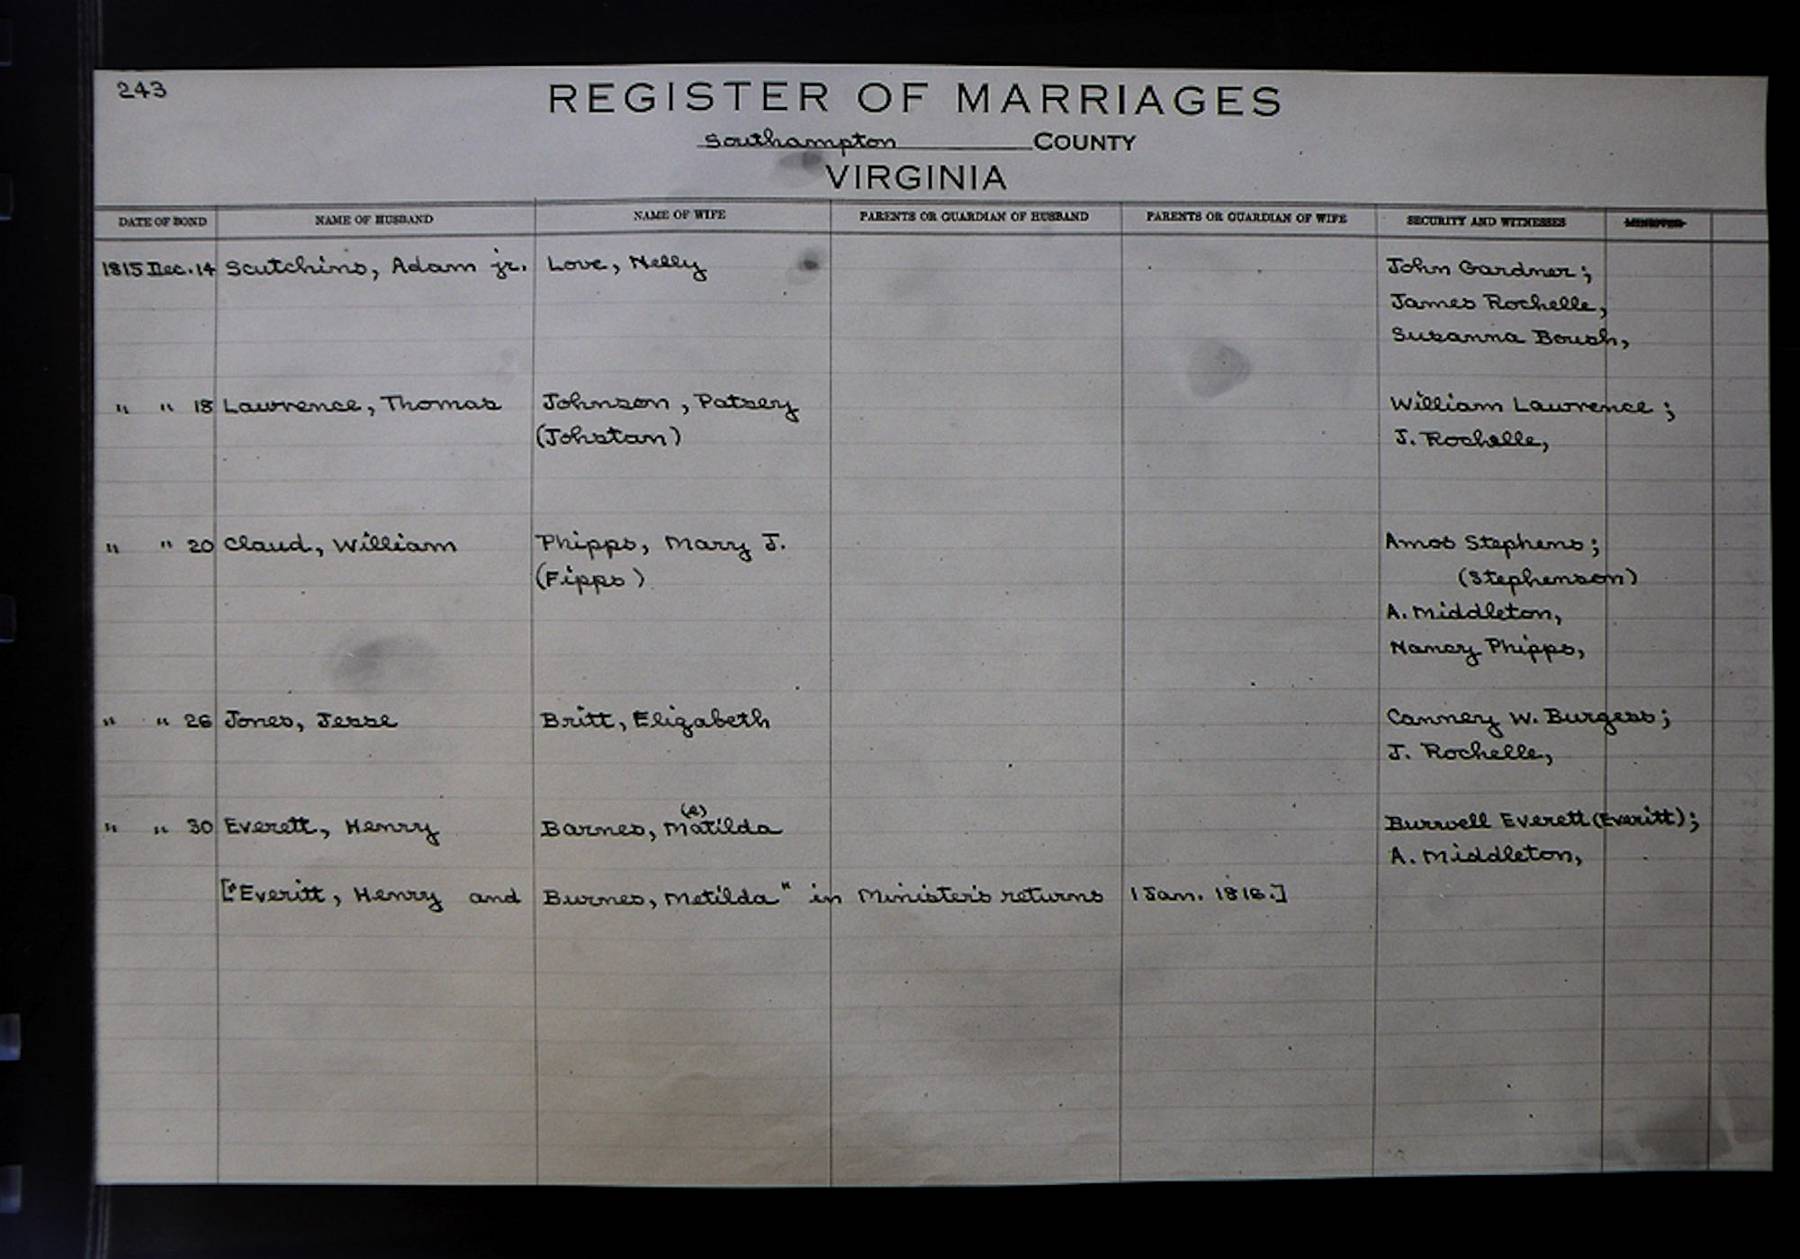 243
REGISTER OF MARRIAGES
Southampton COUNTY
VIRGINIA
DATE OF BOND NAME OF HUSBAND NAME OF WIFE PARENTS OR GUARDIAN OF HUSBAND PARENTS OR GUARDIAN OF WIFE SECURITY AND WITNESSES MINISTER
1815 Dec. 14 Scutchins, Adam jr. Love, Nelly John Gardner;
James Rochelle,
Susanna Boush,
" " 18 Lawrence, Thomas Johnson, Patsey William Lawrence;
(Johstan) J. Rochelle,
" " 20 Claud, William Phipps, Mary J. Amos Stephens;
(Fipps) (Stephenson)
A. Middleton,
Nancy Phipps,
" " 26 Jones, Jesse Britt, Elizabeth Canmery W. Burgess;
J. Rochelle,
(e)
" " 30 Everett, Henry Barnes, Matilda Burwell Everett (Everitt);
A. Middleton,
["Everitt, Henry and Burnes, Metilda" in Minister's returns 1 Jan. 1816.]